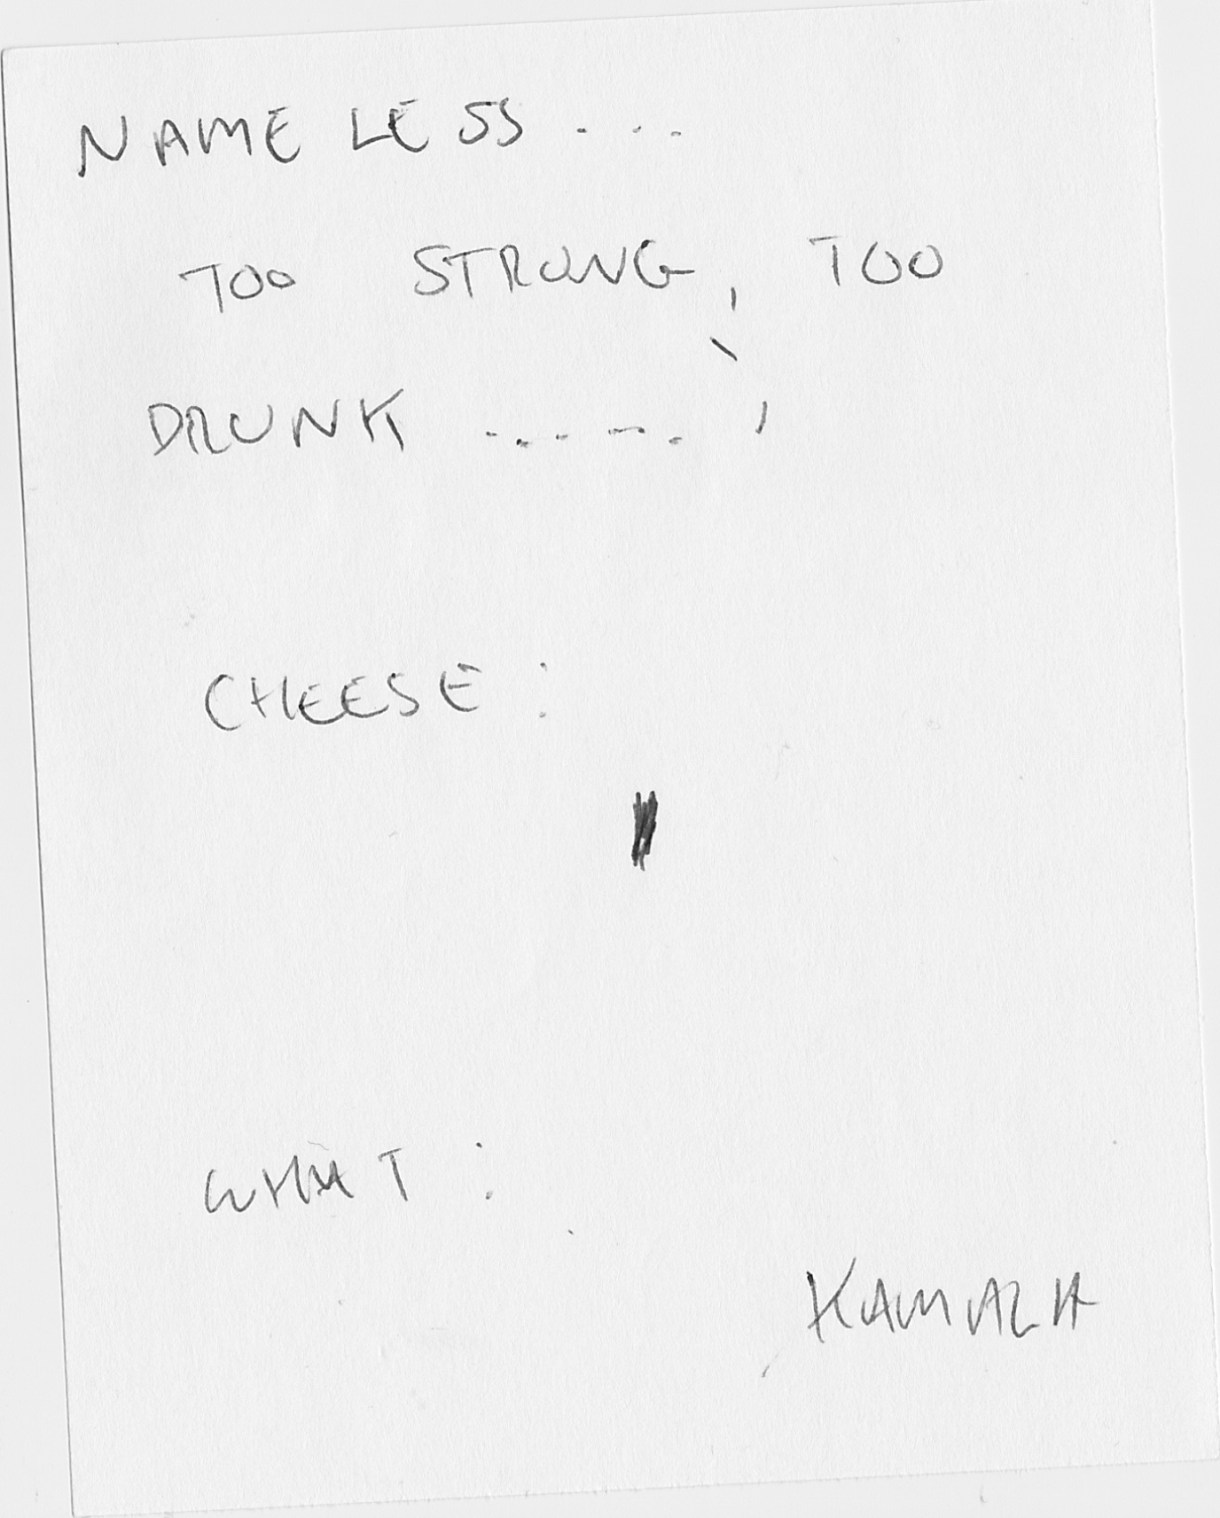 NAMELESS ...
TOO STRONG, TOO
DRUNK ......
CHEESE :
WHAT :
KAMALA